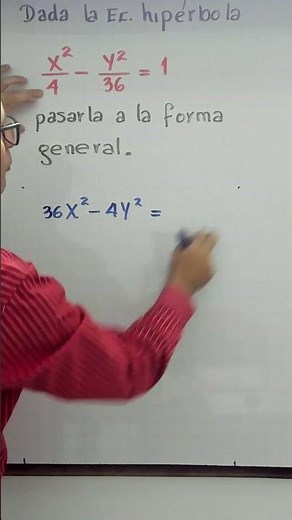 Dada la Ec. hipérbola
x²/4 - y²/36 = 1
pasarla a la forma
general.
36x² - 4y² =